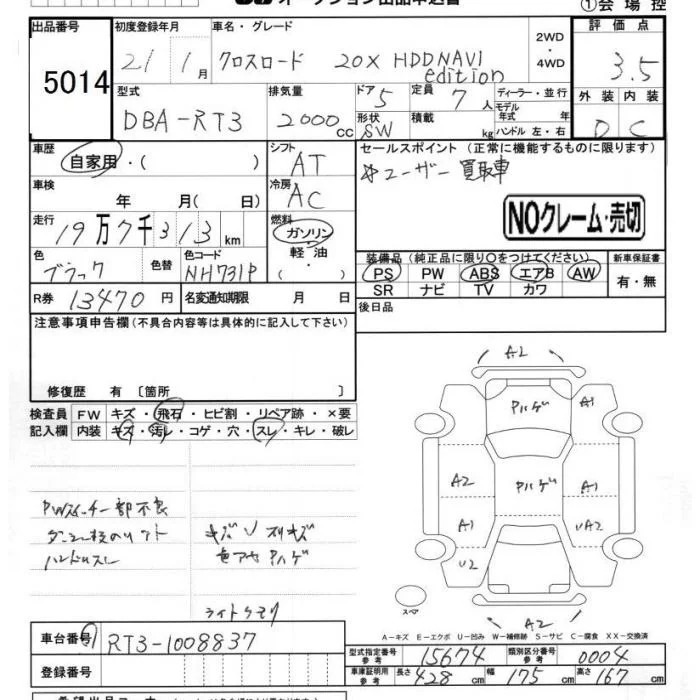 ①会場控
出品番号
5014
初度登録年月
21 1月
車名・グレード
クロスロード 20X HDDNAVI edition
2WD
・
4WD
評価点
3.5
外装 内装
D C
型式
DBA-RT3
排気量
2000cc
ドア 5
形状 SW
定員 7人
積載 kg
ディーラー・並行
モデル年式 年
ハンドル 左・右
車歴
自家用・( )
車検
年 月(日)
走行
19万7千313km
シフト
AT
冷房
AC
燃料
ガソリン
・
軽油
・
( )
色
ブラック
色替
色コード
NH731P
R券 13470円
名変通知期限 月 日
セールスポイント(正常に機能するものに限ります)
ユーザー買取車
NOクレーム・売切
装備品(純正品に限り○をつけてください)
PS PW ABS エアB AW
SR ナビ TV カワ
新車保証書
有・無
後日品
注意事項申告欄(不具合内容等は具体的に記入して下さい)
修復歴 有〔箇所 〕
検査員記入欄
FW キズ・飛石・ヒビ割・リペア跡・×要
内装 キズ・汚レ・コゲ・穴・スレ・キレ・破レ
PWスイッチ一部不良
ハンドルスレ
キズ U スリキズ
色アセ Pハゲ
ライトクモリ
A2
Pハゲ
A1
A2
Pハゲ
A1
A1
UA2
U2
A2
スペア
A-キズ E-エクボ U-凹み W-補修跡 S-サビ C-腐食 XX-交換済
車台番号
RT3-1008837
登録番号
型式指定番号 参考 15674
類別区分番号 参考 0004
車庫証明用 参考 長さ 428cm 幅 175cm 高さ 167cm